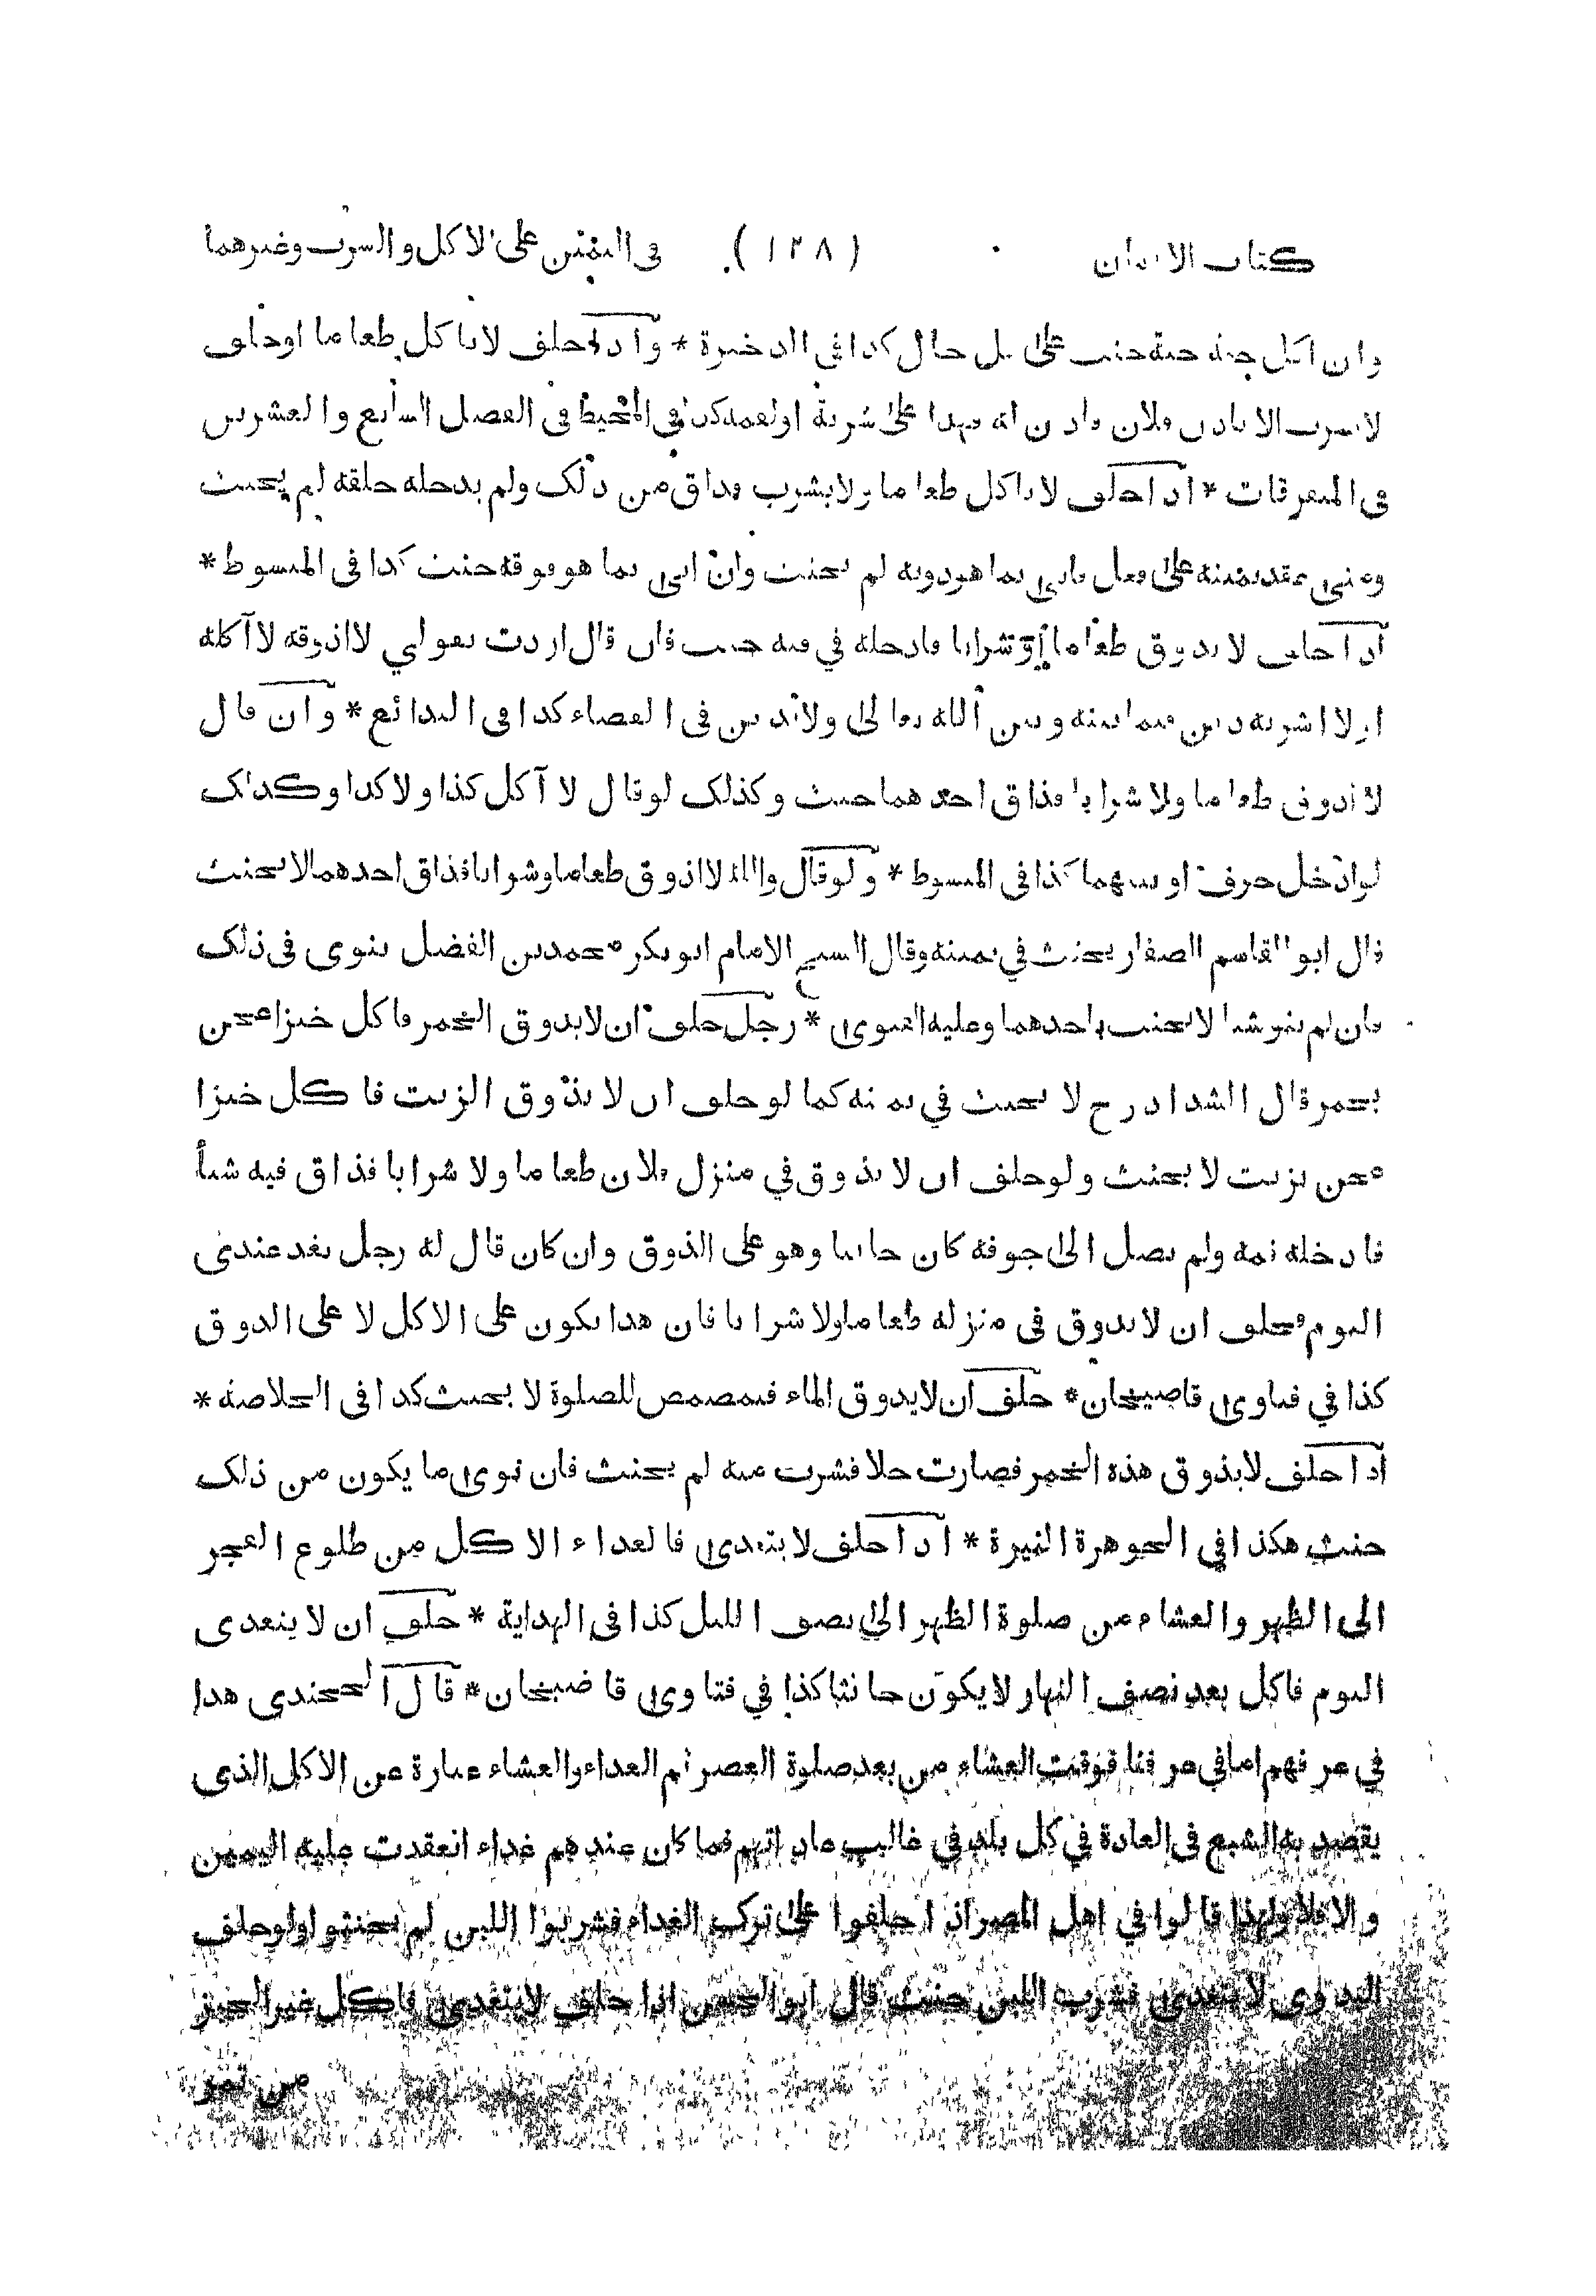 كتاب الايمان (١٢٨) فى اليمين على الاكل والشرب وغيرهما
وان اكل حبة حبة حنث على كل حال كذا فى الذخيرة * واذا حلف لا ياكل طعاما او حلف
لا يشرب الا باذن فلان فاذن له فهذا على شربة او لقمة كذا فى المحيط فى الفصل السابع والعشرين
فى المتفرقات * اذا حلف لا ياكل طعاما ولا يشرب فذاق من ذلك ولم يدخله حلقه لم يحنث
ومتى عقد يمينه على فعل فاتى بما هو دونه لم يحنث وان اتى بما هو فوقه حنث كذا فى المبسوط *
اذا حلف لا يذوق طعاما او شرابا فادخله في فيه حنث فان قال اردت بقولي لا اذوقه لا آكله
او لا اشربه دين فيما بينه وبين الله تعالى ولا يدين فى القضاء كذا فى البدائع * وان قال
لا اذوق طعاما ولا شرابا فذاق احدهما حنث وكذلك لو قال لا آكل كذا ولا كذا وكذلك
لو ادخل حرف او بينهما كذا فى المبسوط * ولو قال والله لا اذوق طعاما وشرابا فذاق احدهما لا يحنث
قال ابو القاسم الصفار يحنث في يمينه وقال الشيخ الامام ابو بكر محمد بن الفضل ينوى فى ذلك
فان لم ينو شيئا لا يحنث باحدهما وعليه الفتوى * رجل حلف ان لا يذوق الخمر فاكل خبزا عجن
بخمر قال الشداد رح لا يحنث في يمينه كما لو حلف ان لا يذوق الزيت فاكل خبزا
عجن بزيت لا يحنث ولو حلف ان لا يذوق في منزل فلان طعاما ولا شرابا فذاق فيه شيأ
فادخله فمه ولم يصل الى جوفه كان حانثا وهو على الذوق وان كان قال له رجل تغد عندى
اليوم فحلف ان لا يذوق فى منزله طعاما ولا شرابا فان هذا يكون على الاكل لا على الذوق
كذا في فتاوى قاضيخان * حلف ان لا يذوق الماء فتمضمض للصلوة لا يحنث كذا فى الخلاصة *
اذا حلف لا يذوق هذه الخمر فصارت خلا فشرب منه لم يحنث فان نوى ما يكون من ذلك
حنث هكذا في الجوهرة النيرة * اذا حلف لا يتغدى فالغداء الاكل من طلوع الفجر
الى الظهر والعشاء من صلوة الظهر الى نصف الليل كذا فى الهداية * حلف ان لا يتغدى
اليوم فاكل بعد نصف النهار لا يكون حانثا كذا في فتاوى قاضيخان * قال الخجندى هذا
في عرفهم اما في عرفنا فوقت العشاء من بعد صلوة العصر ثم الغداء والعشاء عبارة عن الاكل الذى
يقصد به الشبع فى العادة في كل بلد في غالب عاداتهم فما كان عندهم غداء انعقدت عليه اليمين
والا فلا ولهذا قالوا في اهل المصر اذا حلفوا على ترك الغداء فشربوا اللبن لم يحنثوا ولو حلف
البدوى لا يتغدى فشرب اللبن حنث قال ابو الحسن اذا حلف لا يتغدى فاكل غير الخبز
من تمر